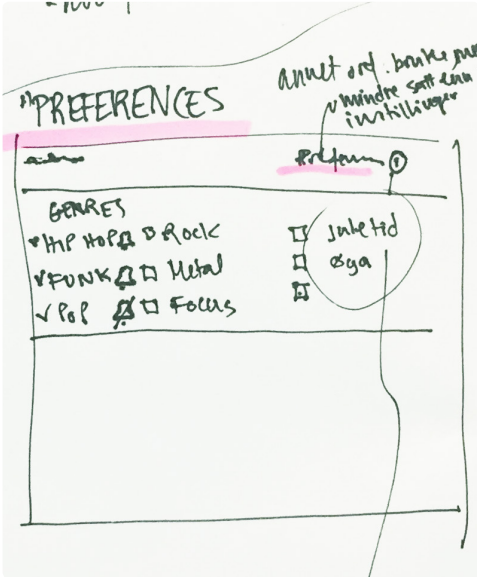 annet ord. bruke
mindre satt enn
instillinger
"PREFERENCES
GENRES
HIP HOP Rock
FUNK Metal
POP Focus
Juletid
Øya